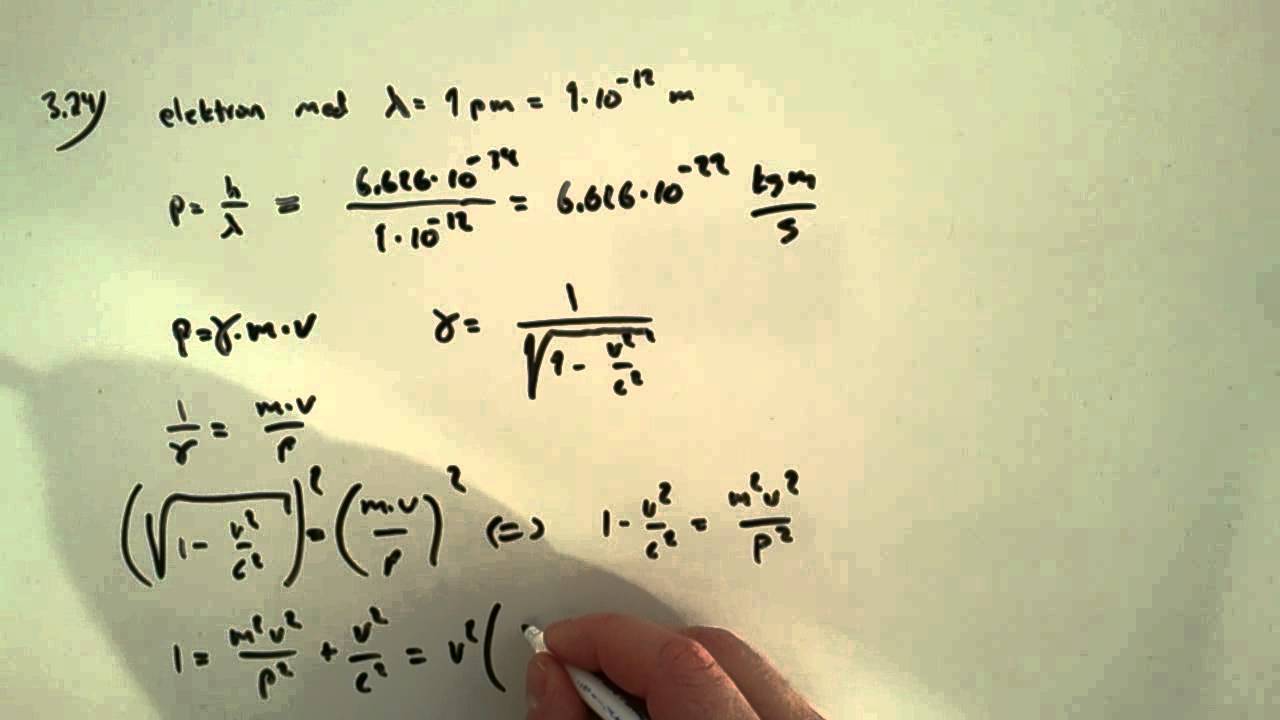 3.24) elektron med λ = 1 pm = 1·10⁻¹² m
p = h/λ = 6.626·10⁻³⁴ / 1·10⁻¹² = 6.626·10⁻²² kg m / s
p = γ·m·v    γ = 1 / √(1 - v²/c²)
1/γ = m·v / p
(√(1 - v²/c²))² = (m·v / p)² (=) 1 - v²/c² = m²v² / p²
1 = m²v²/p² + v²/c² = v² (